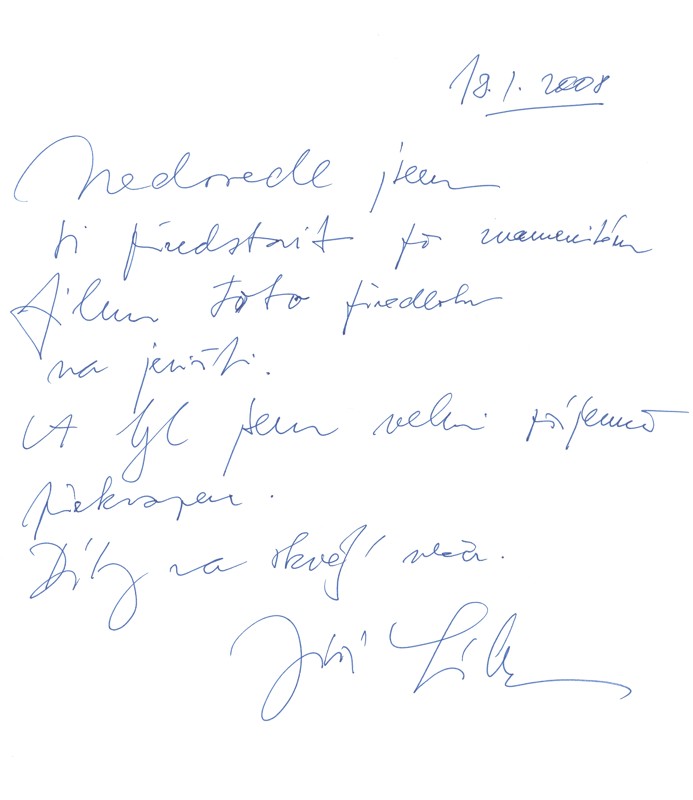 18.1.2008
Nedovedl jsem
si představit po znamenitém
filmu toto předlohu
na jevišti.
A byl jsem velmi příjemně
překvapen.
Díky za skvělý večer.
Jiří